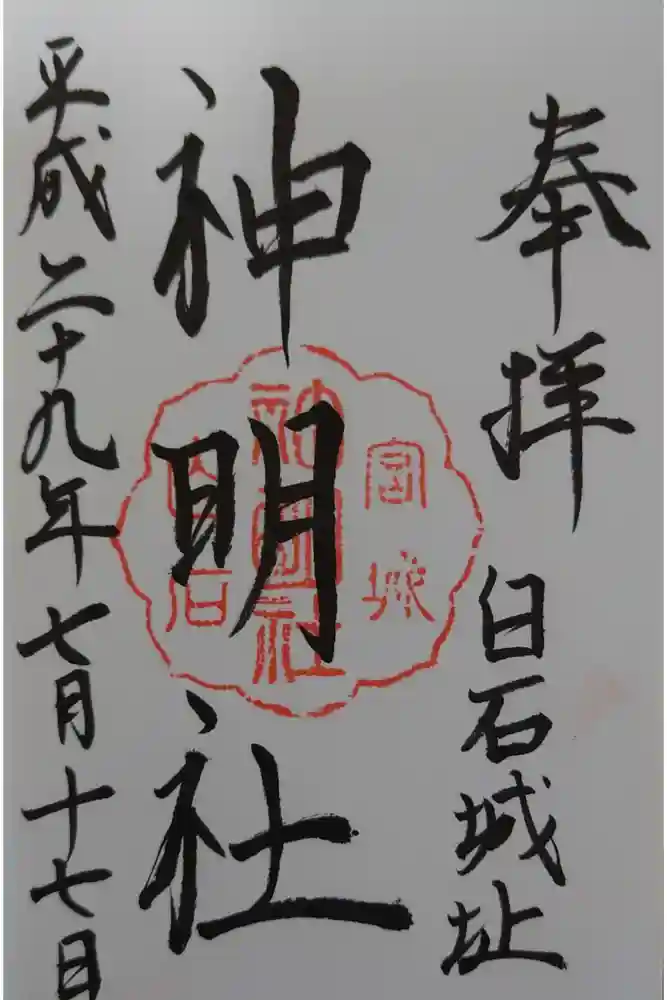 奉拝 白石城址
神明社
宮城
神明社
白石
平成二十九年七月十七日